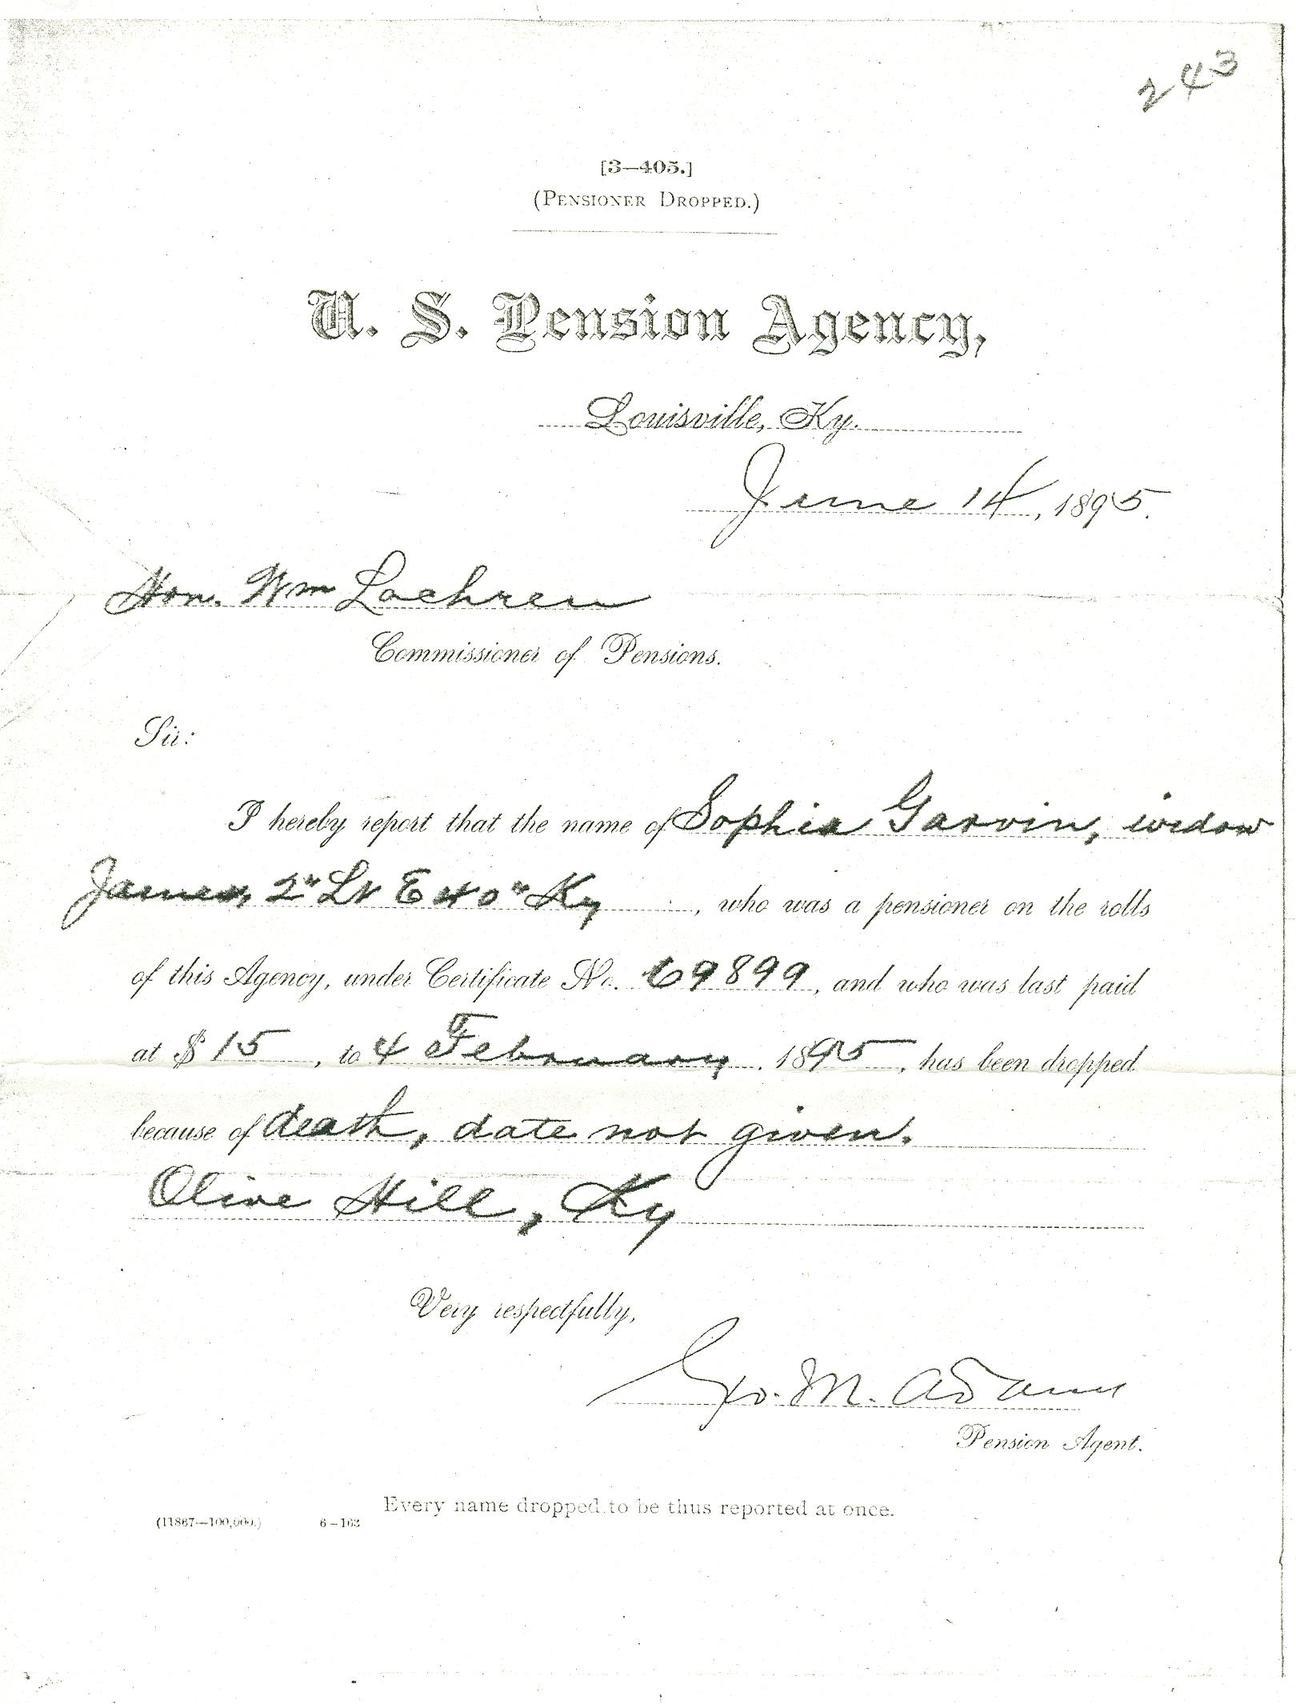 243
[3—405.]
(PENSIONER DROPPED.)
U. S. Pension Agency,
Louisville, Ky.
June 14, 1895.
Hon. Wm Lochren
Commissioner of Pensions.
Sir:
I hereby report that the name of Sophia Garvin, widow
James, 2" Lt E 40" Ky, who was a pensioner on the rolls
of this Agency, under Certificate No. 69899, and who was last paid
at $15, to 4 February, 1895, has been dropped
because of death, date not given.
Olive Hill, Ky
Very respectfully,
Geo. M. Adams
Pension Agent.
Every name dropped to be thus reported at once.
(11867—100,000.) 6–163